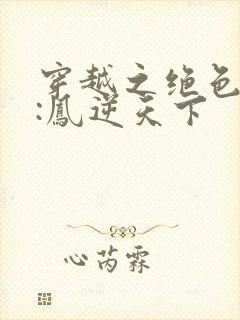 穿越之绝色
:凰逆天下
心芮霖